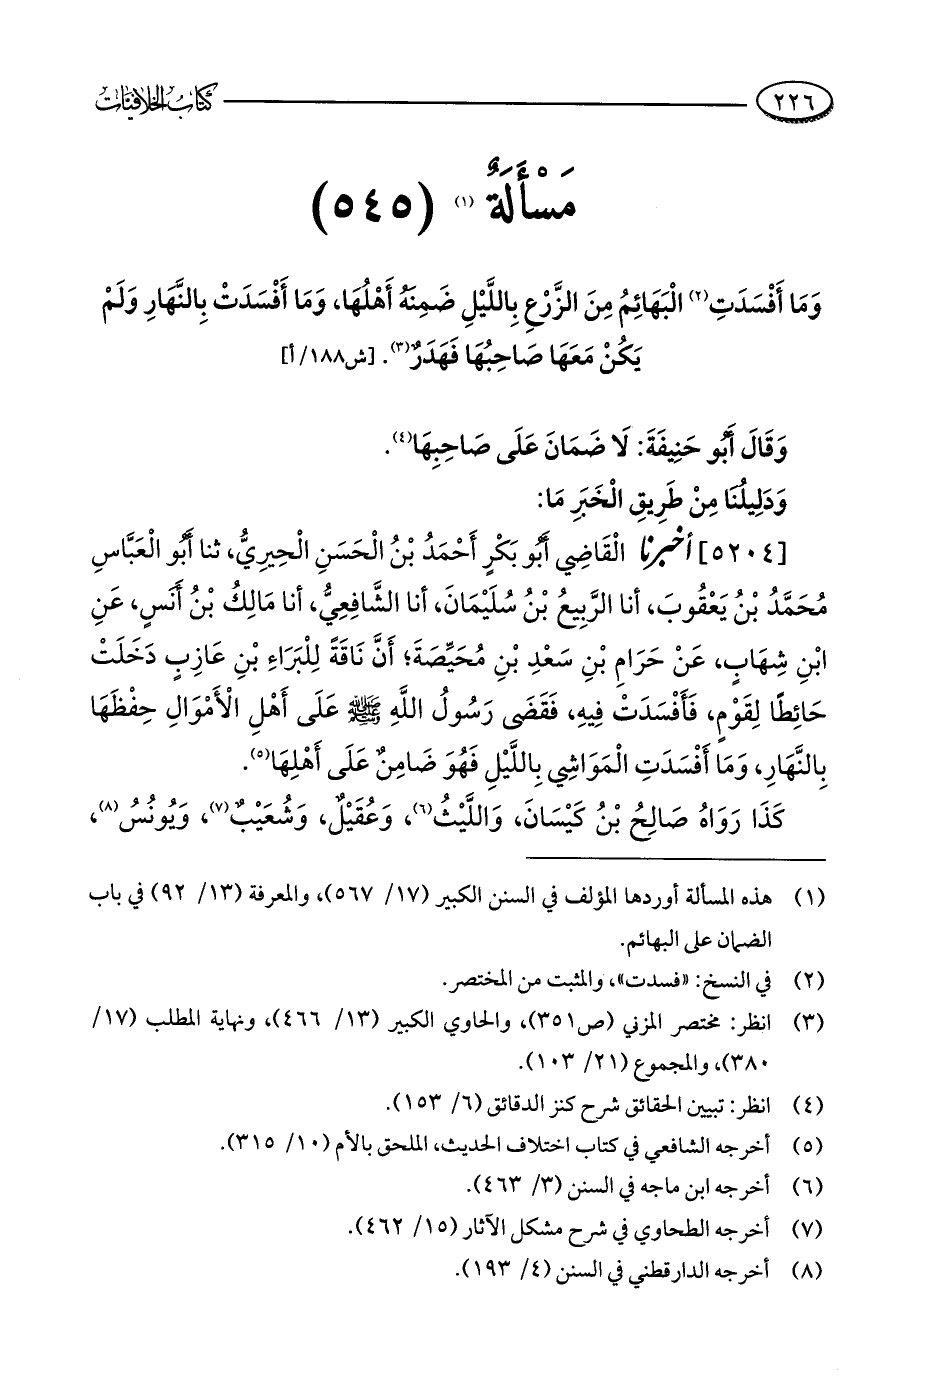 ٢٢٦ كتاب الخلافيات
مَسْأَلَةٌ (١) (٥٤٥)
وَمَا أَفْسَدَتِ(٢) الْبَهَائِمُ مِنَ الزَّرْعِ بِاللَّيْلِ ضَمِنَهُ أَهْلُهَا، وَمَا أَفْسَدَتْ بِالنَّهَارِ وَلَمْ
يَكُنْ مَعَهَا صَاحِبُهَا فَهَدَرٌ(٣). [ش١٨٨/أ]
وَقَالَ أَبُو حَنِيفَةَ: لَا ضَمَانَ عَلَى صَاحِبِهَا(٤).
وَدَلِيلُنَا مِنْ طَرِيقِ الْخَبَرِ مَا:
[٥٢٠٤] أخبرنا الْقَاضِي أَبُو بَكْرٍ أَحْمَدُ بْنُ الْحَسَنِ الْحِيرِيُّ، ثنا أَبُو الْعَبَّاسِ
مُحَمَّدُ بْنُ يَعْقُوبَ، أنا الرَّبِيعُ بْنُ سُلَيْمَانَ، أنا الشَّافِعِيُّ، أنا مَالِكُ بْنُ أَنَسٍ، عَنِ
ابْنِ شِهَابٍ، عَنْ حَرَامِ بْنِ سَعْدِ بْنِ مُحَيِّصَةَ؛ أَنَّ نَاقَةً لِلْبَرَاءِ بْنِ عَازِبٍ دَخَلَتْ
حَائِطًا لِقَوْمٍ، فَأَفْسَدَتْ فِيهِ، فَقَضَى رَسُولُ اللَّهِ ﷺ عَلَى أَهْلِ الْأَمْوَالِ حِفْظَهَا
بِالنَّهَارِ، وَمَا أَفْسَدَتِ الْمَوَاشِي بِاللَّيْلِ فَهُوَ ضَامِنٌ عَلَى أَهْلِهَا(٥).
كَذَا رَوَاهُ صَالِحُ بْنُ كَيْسَانَ، وَاللَّيْثُ(٦)، وَعُقَيْلٌ، وَشُعَيْبٌ(٧)، وَيُونُسُ(٨)،
(١) هذه المسألة أوردها المؤلف في السنن الكبير (١٧/ ٥٦٧)، والمعرفة (١٣/ ٩٢) في باب
الضمان على البهائم.
(٢) في النسخ: «فسدت»، والمثبت من المختصر.
(٣) انظر: مختصر المزني (ص٣٥١)، والحاوي الكبير (١٣/ ٤٦٦)، ونهاية المطلب (١٧/
٣٨٠)، والمجموع (٢١/ ١٠٣).
(٤) انظر: تبيين الحقائق شرح كنز الدقائق (٦/ ١٥٣).
(٥) أخرجه الشافعي في كتاب اختلاف الحديث، الملحق بالأم (١٠/ ٣١٥).
(٦) أخرجه ابن ماجه في السنن (٣/ ٤٦٣).
(٧) أخرجه الطحاوي في شرح مشكل الآثار (١٥/ ٤٦٢).
(٨) أخرجه الدارقطني في السنن (٤/ ١٩٣).